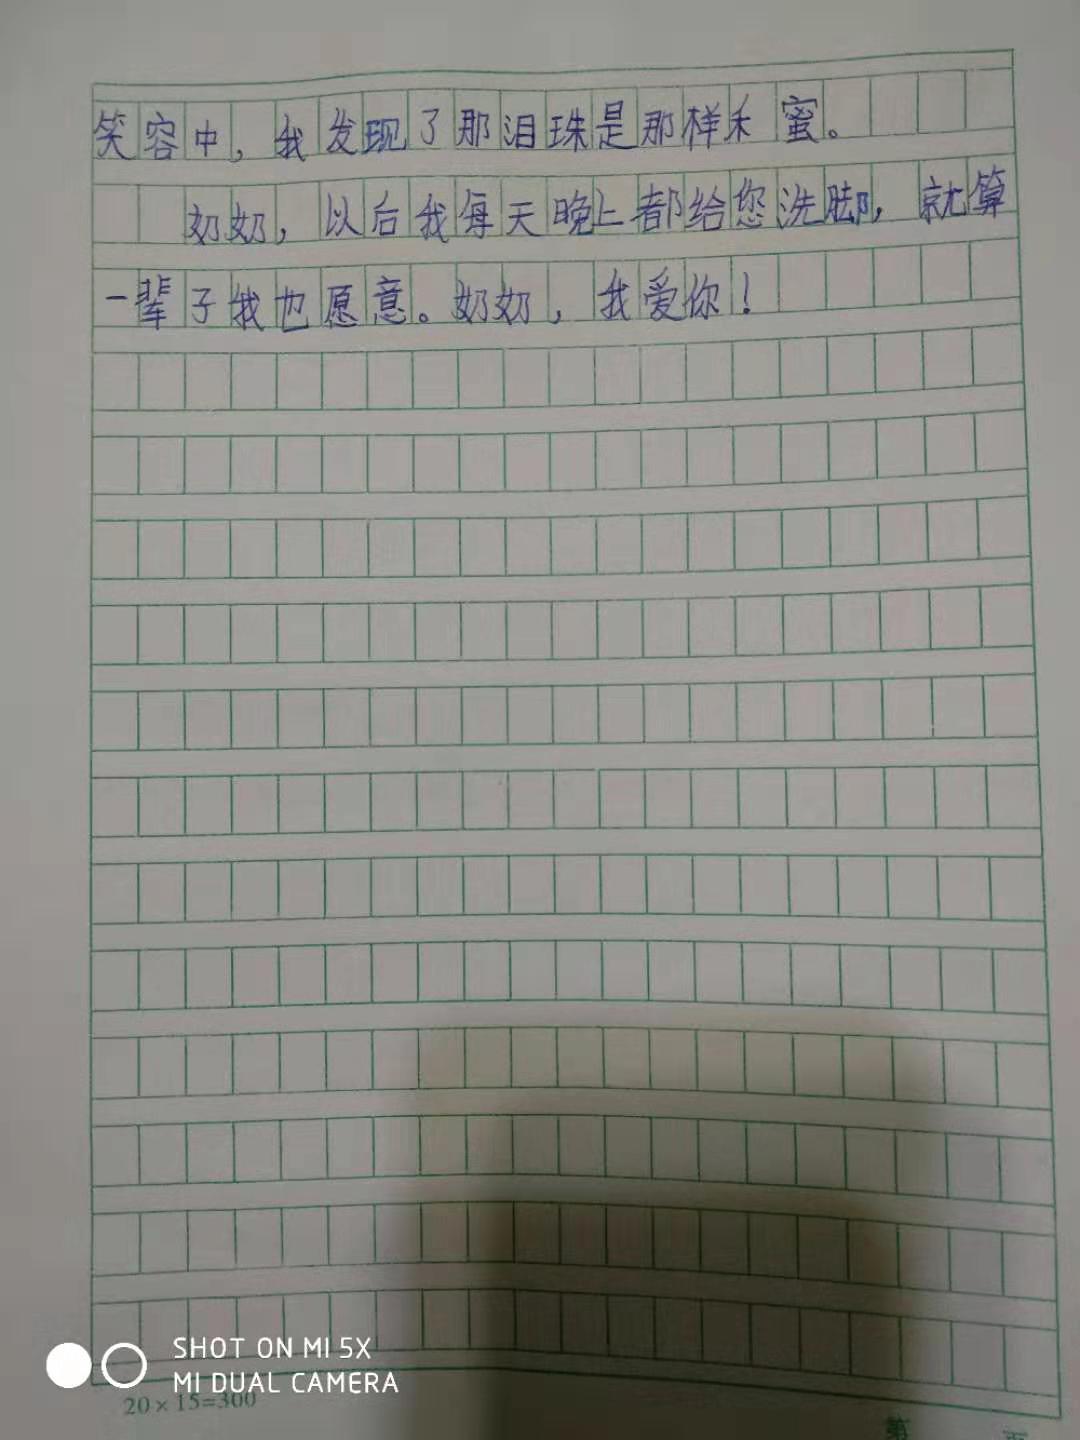 笑容中，我发现了那泪珠是那样禾蜜。
奶奶，以后我每天晚上都给您洗脚，就算
一辈子我也愿意。奶奶，我爱你！
SHOT ON MI 5X
MI DUAL CAMERA
20×15=300
第 页